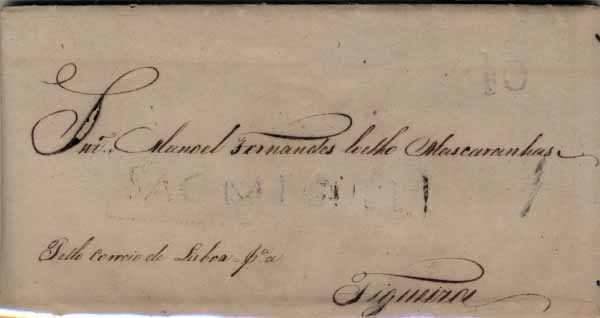 40
Snr. Manoel Fernandes Coelho Mascaranhas
Pello Correio de Lisboa pª a
Figueiros